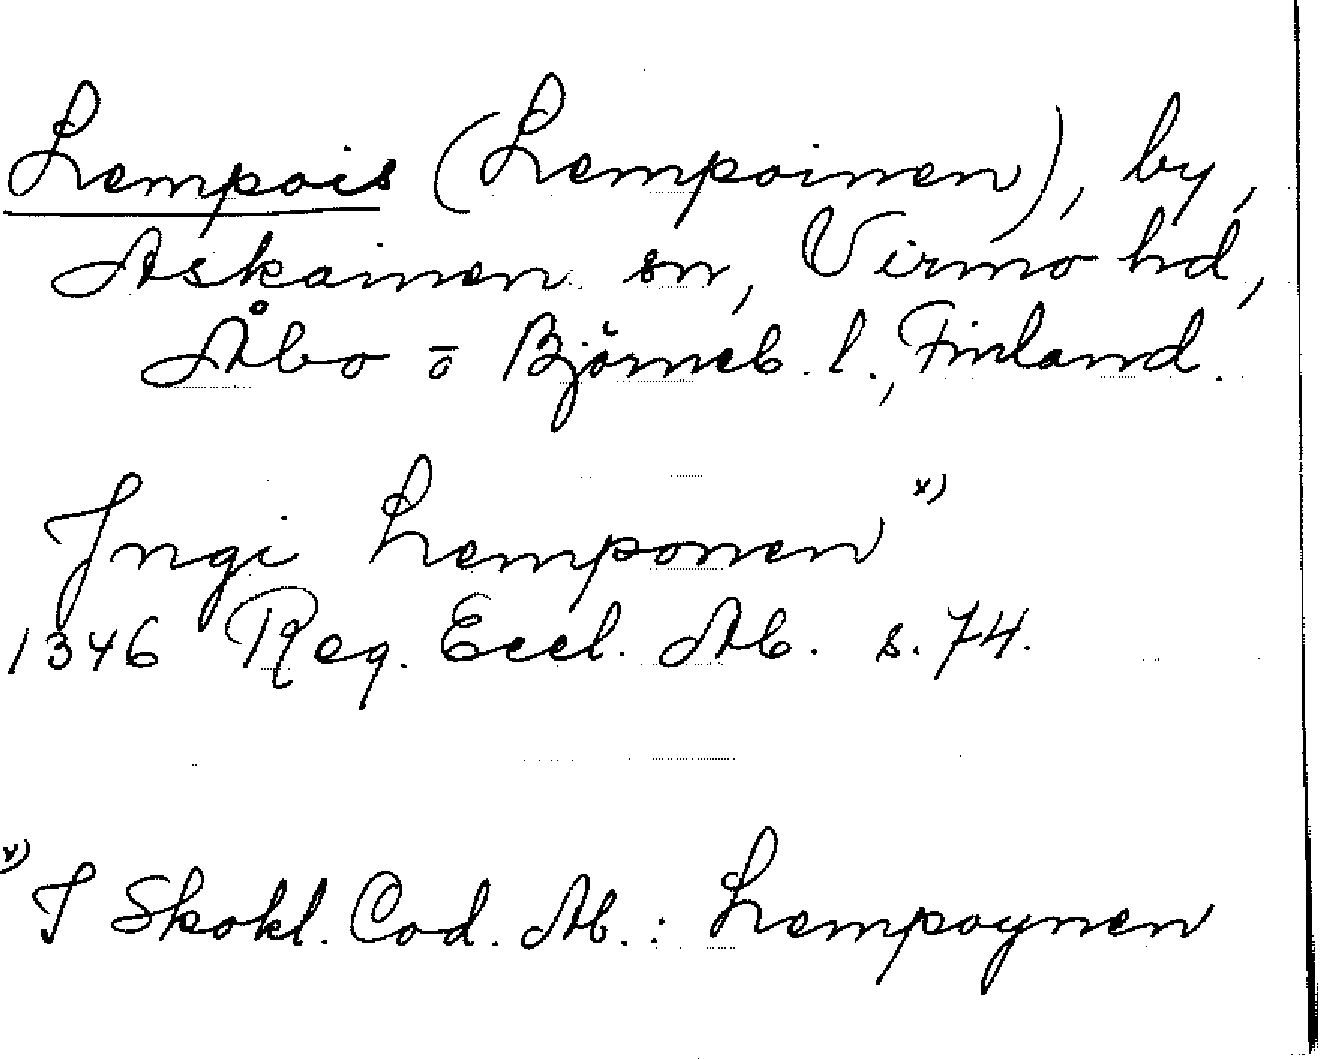 Lempois (Lempoinen), by,
Askainen sn, Virmo hd,
Åbo ō Björneb. l., Finland.
Ingi Lemponen x)
1346 Reg. Eccl. Ab. s. 74.
x) I Skokl. Cod. Ab.: Lempoynen